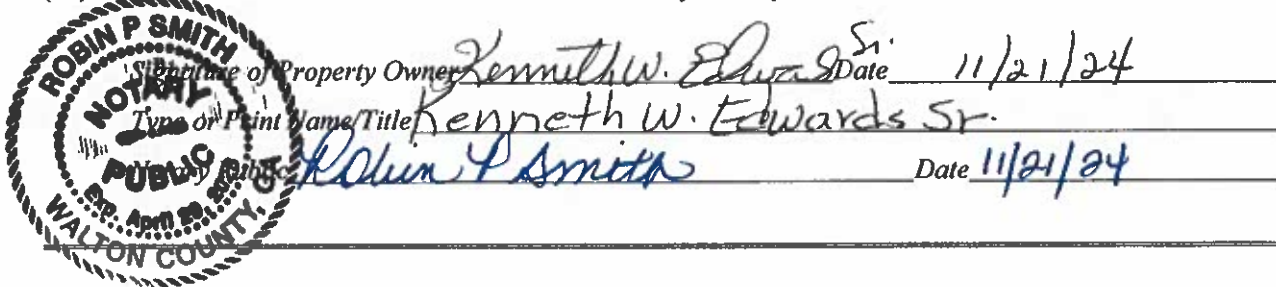 ROBIN P SMITH
NOTARY
PUBLIC
Exp. April
WALTON COUNTY, GA
Signature of Property Owner Kenneth W. Edwards Sr. Date 11/21/24
Type or Print Name/Title Kenneth W. Edwards Sr.
Robin P Smith Date 11/21/24